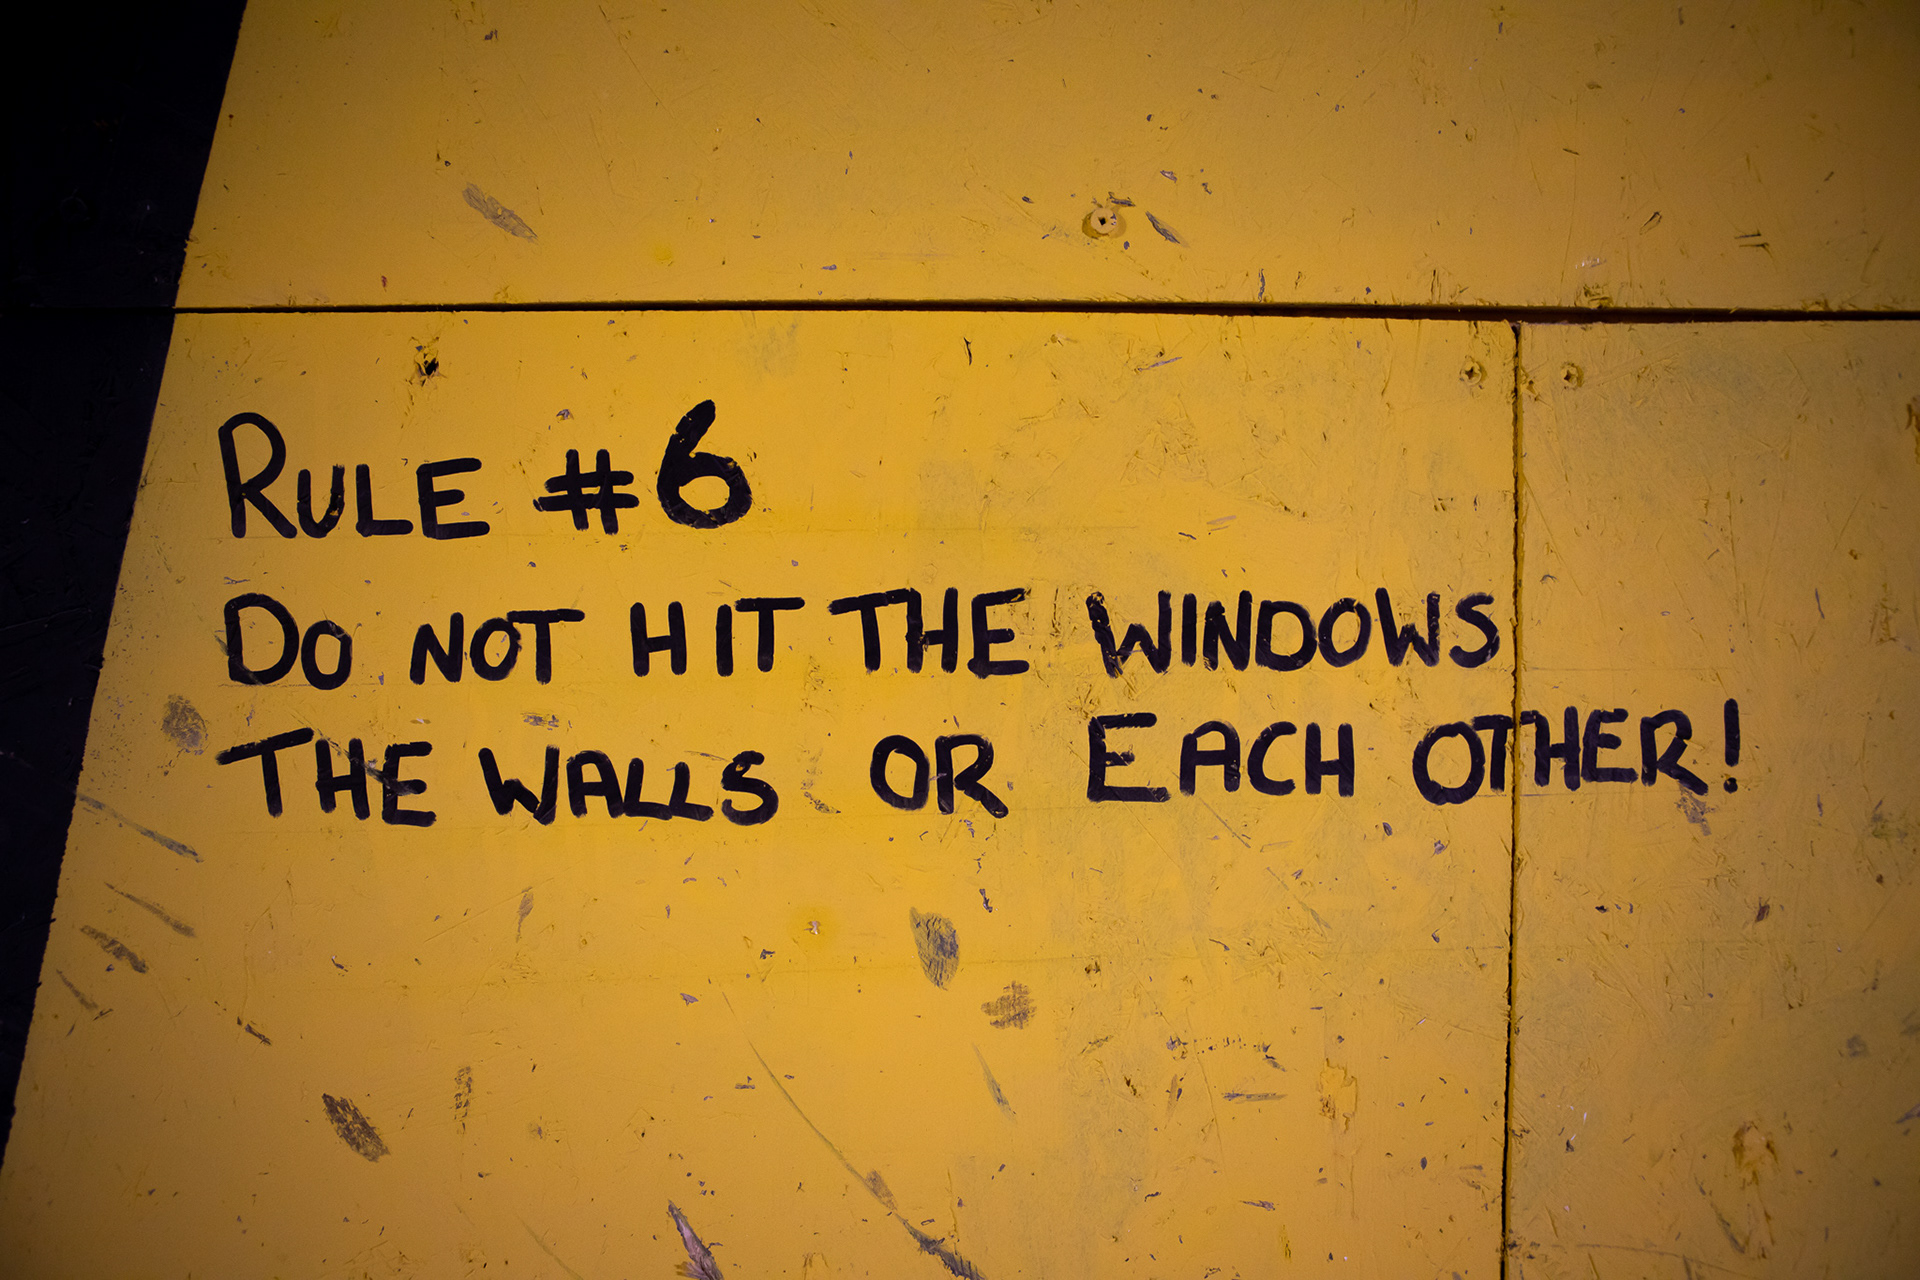 RULE #6
DO NOT HIT THE WINDOWS
THE WALLS OR EACH OTHER!